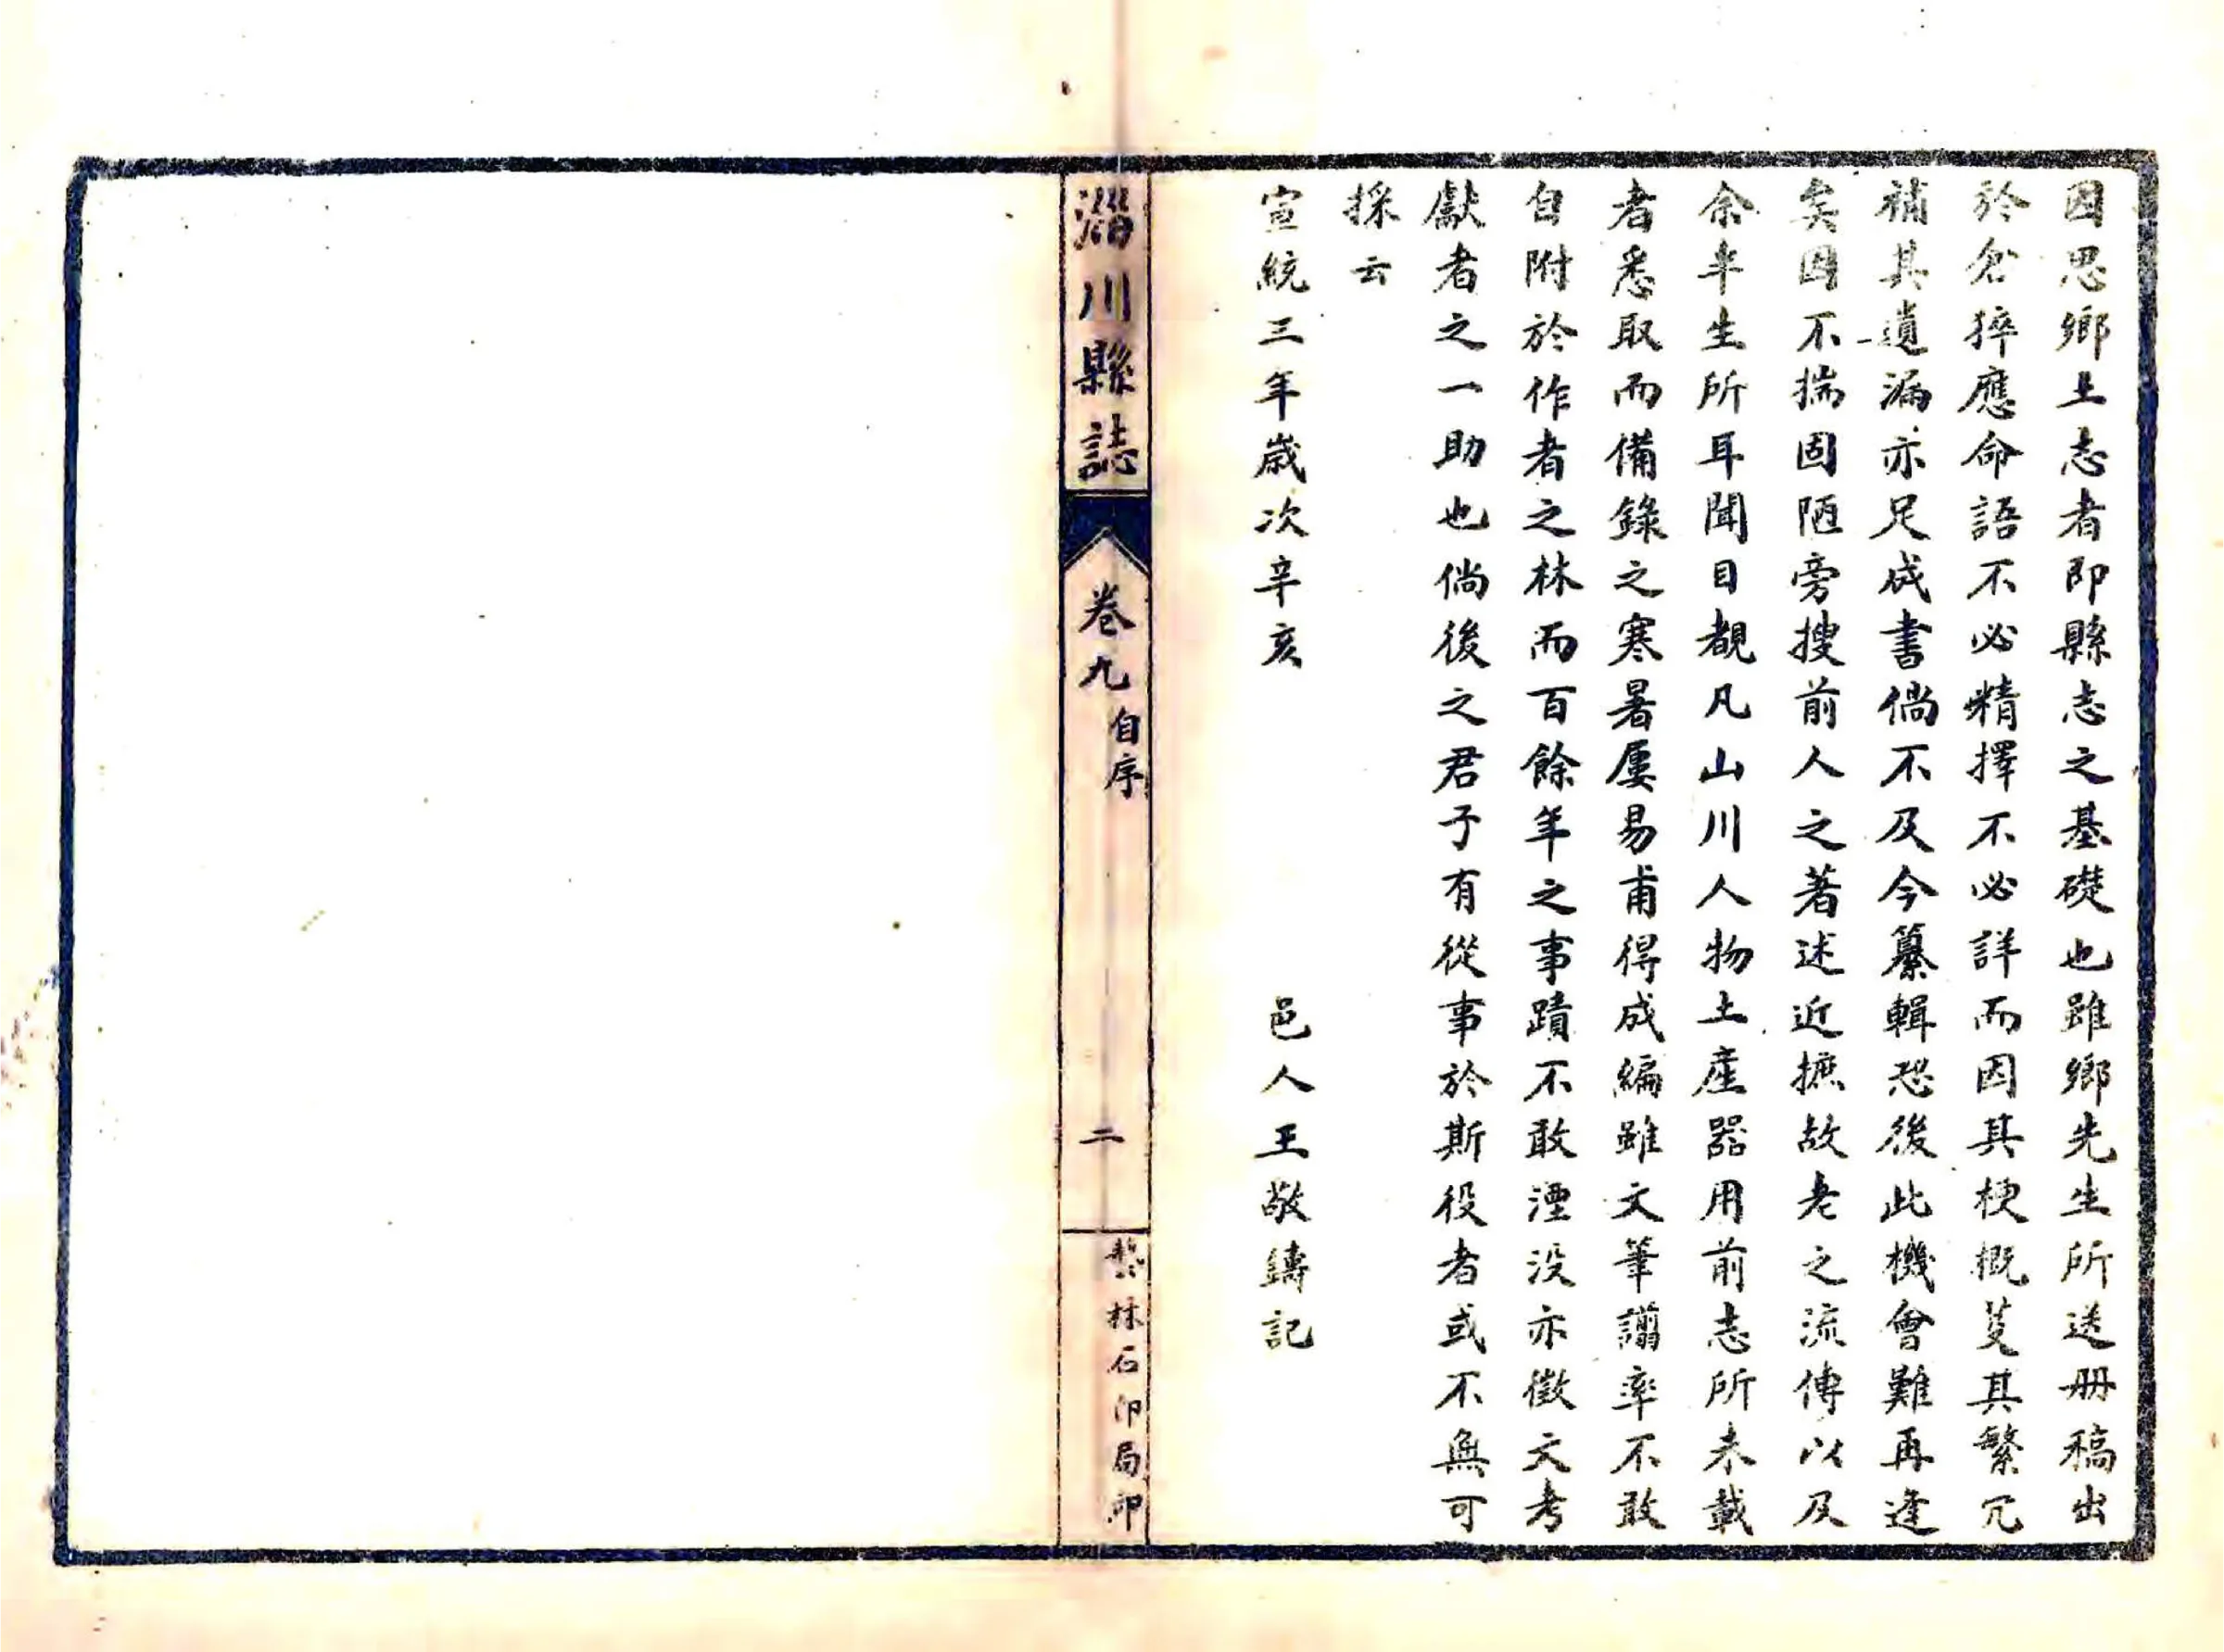 因思鄉土志者即縣志之基礎也雖鄉先生所送册稿出
於倉猝應命語不必精擇不必詳而因其梗概芟其繁冗
補其遺漏亦足成書倘不及今纂輯恐後此機會難再逢
矣因不揣固陋旁搜前人之著述近摭故老之流傳以及
余半生所耳聞目覩凡山川人物土產器用前志所未載
者悉取而備錄之寒暑屢易甫得成編雖文筆譾率不敢
自附於作者之林而百餘年之事蹟不敢湮没亦徵文考
獻者之一助也倘後之君子有從事於斯役者或不無可
採云
宣統三年歲次辛亥 邑人王敬鑄記
淄川縣誌 卷九 自序 二 林石印局印